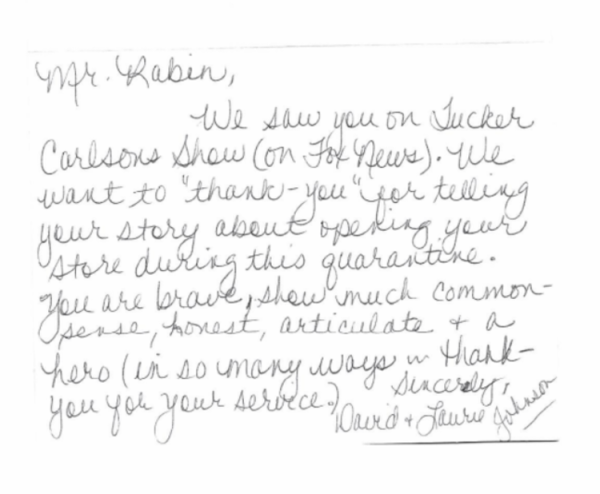 Mr. Rabin,
We saw you on Tucker
Carlsons Show (on Fox News). We
want to "thank-you" for telling
your story about opening your
store during this quarantine.
You are brave, show much common-
sense, honest, articulate + a
hero (in so many ways ~ thank-
you for your service.)
Sincerely,
David + Laurie Johnson